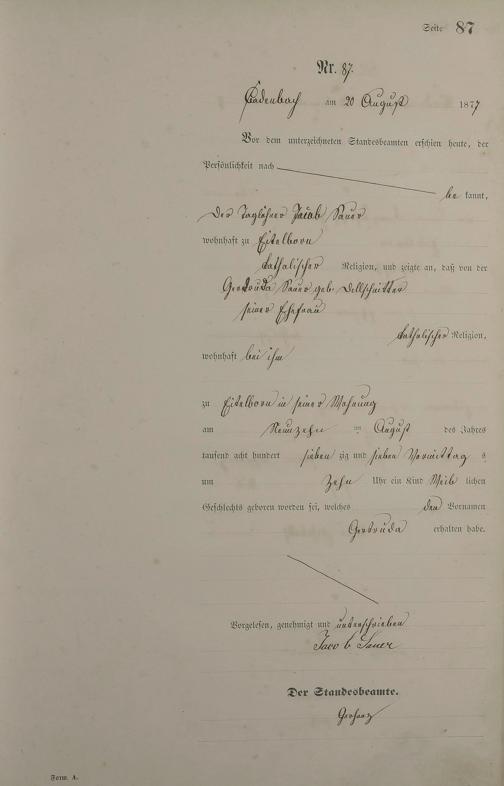 Seite 87
Nr. 87.
Cadenbach am 20 August 1877
Vor dem unterzeichneten Standesbeamten erschien heute, der
Persönlichkeit nach
be kannt,
Der Taglöhner Jacob Sauer
wohnhaft zu Eitelborn
katholischer Religion, und zeigte an, daß von der
Gertruda Sauer geb. Dellschnitter
seiner Ehefrau
katholischer Religion,
wohnhaft bei ihm
zu Eitelborn in seiner Wohnung
am Neunzehn ten August des Jahres
tausend acht hundert sieben zig und sieben Vormittag s
um Zehn Uhr ein Kind Weib lichen
Geschlechts geboren worden sei, welches den Vornamen
Gertruda erhalten habe.
Vorgelesen, genehmigt und unterschrieben
Jacob Sauer
Der Standesbeamte.
Form. A.